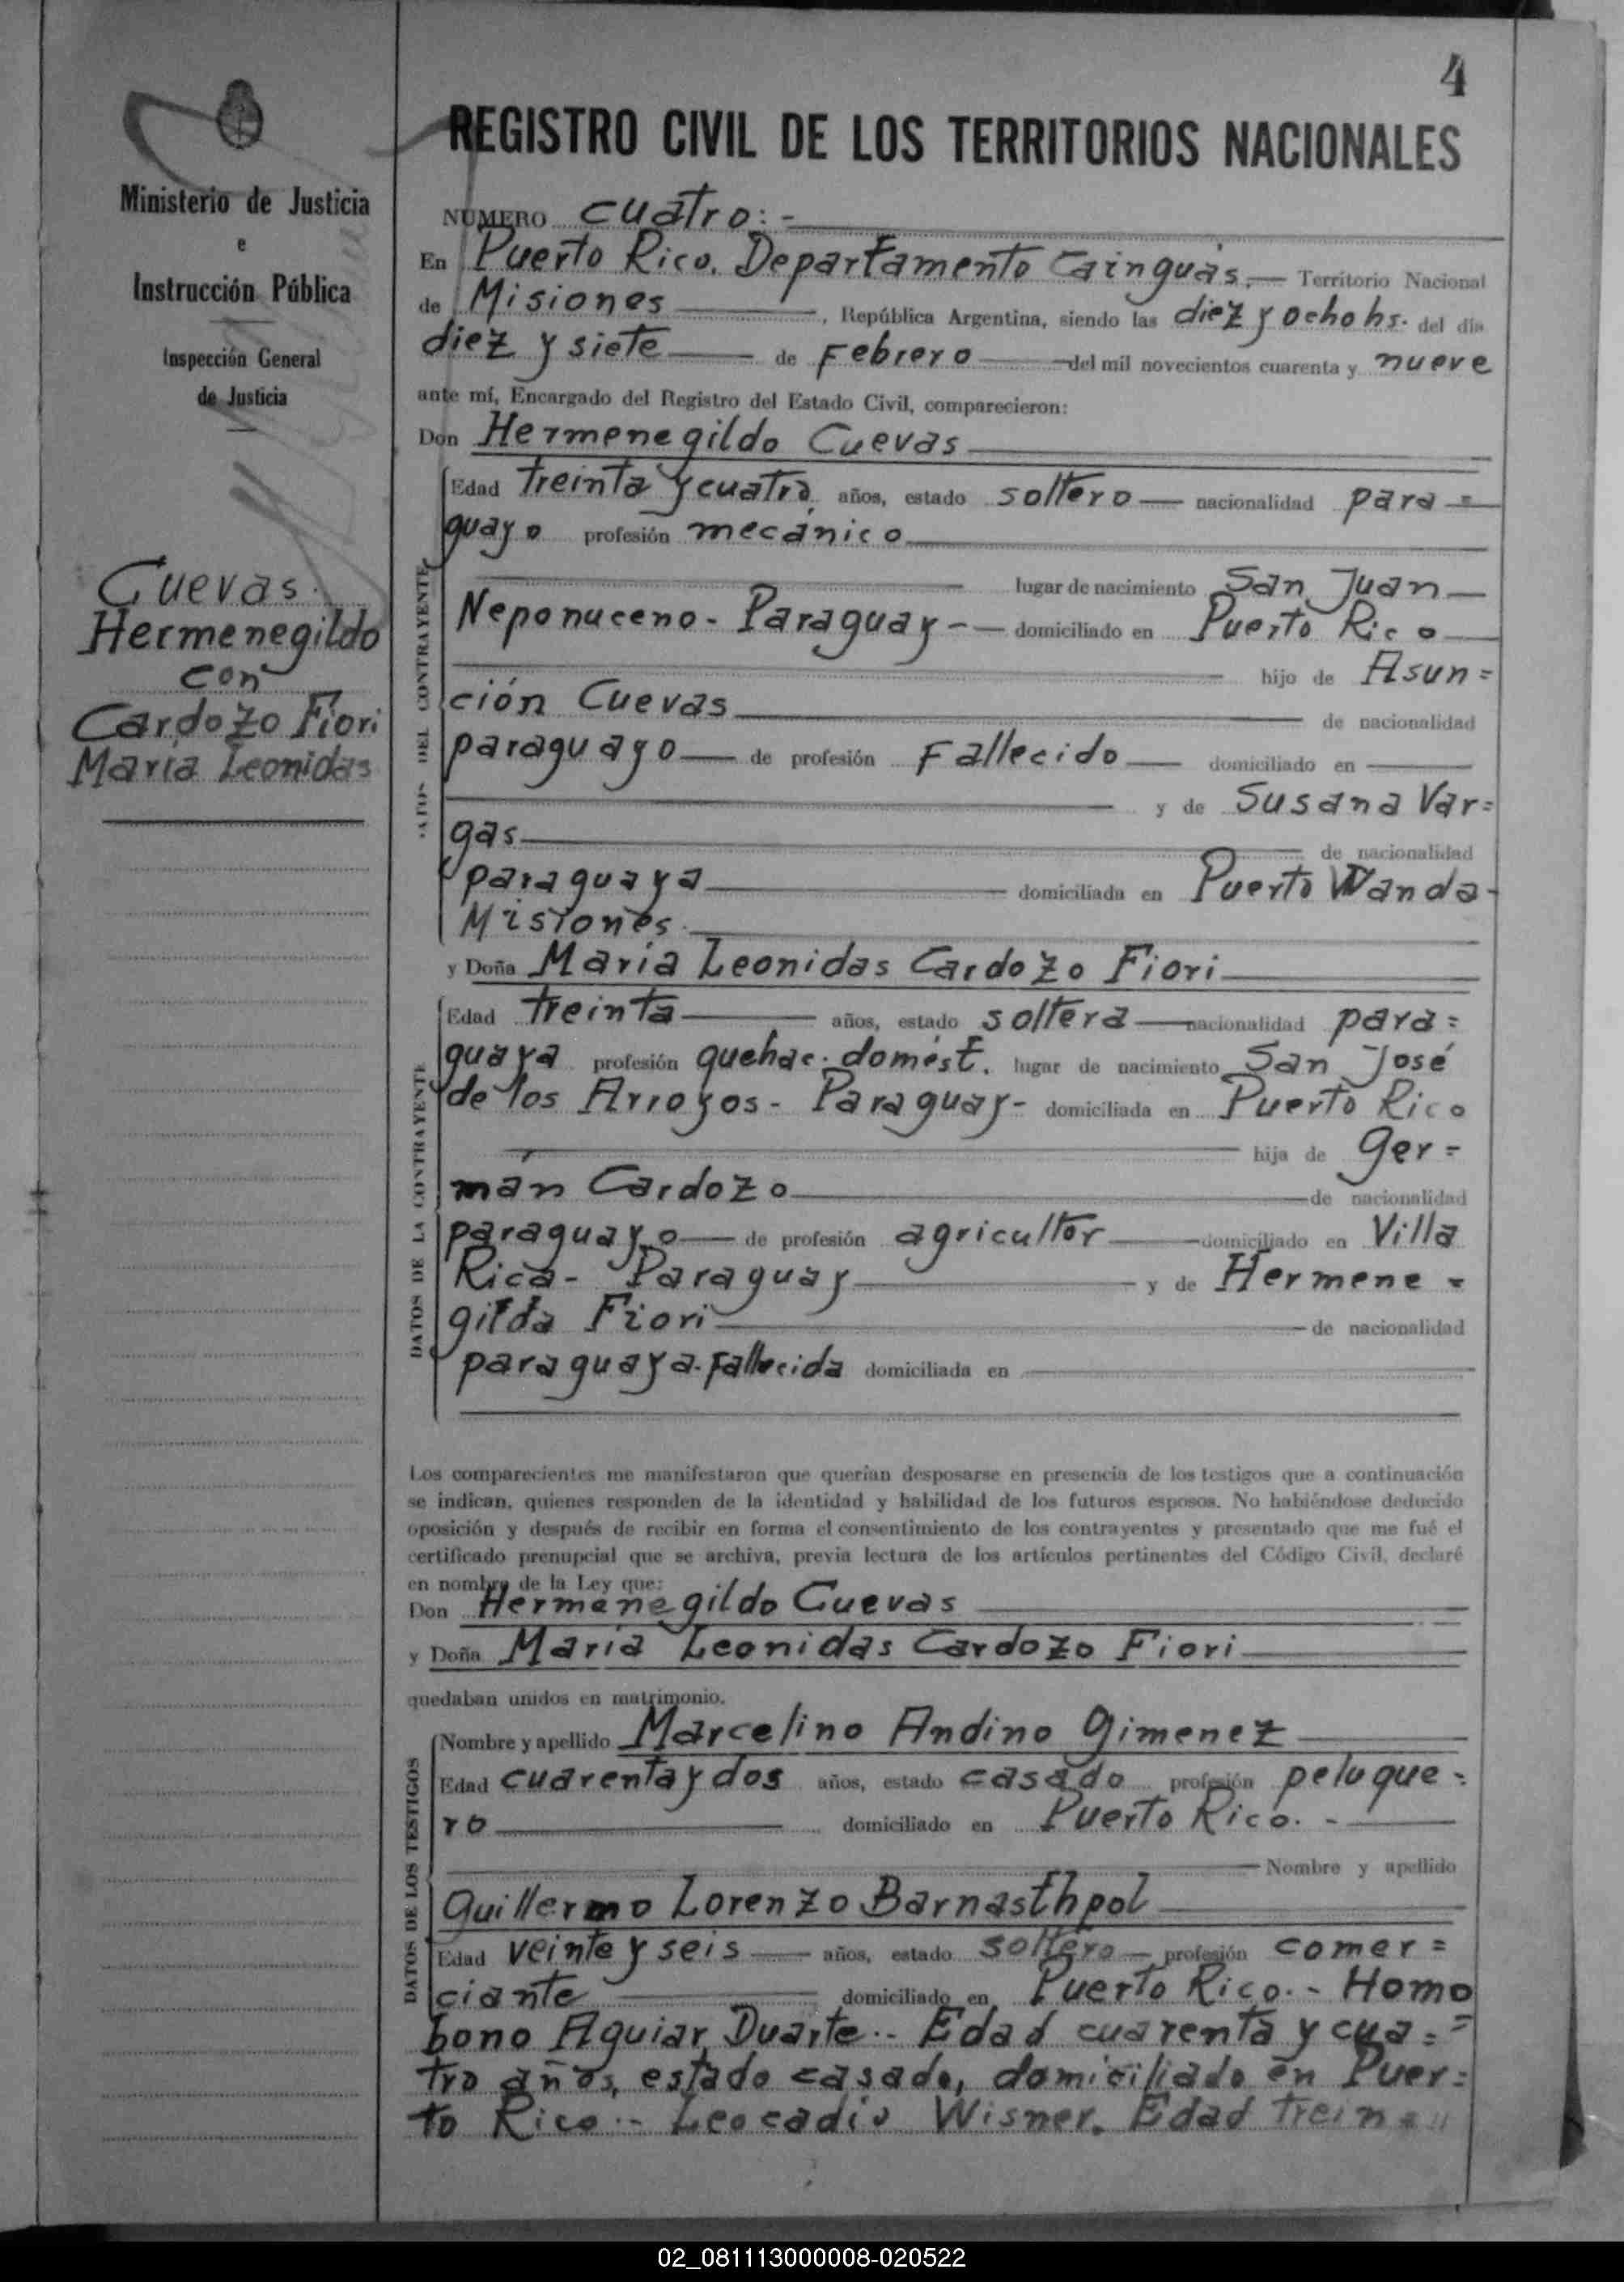 4
REGISTRO CIVIL DE LOS TERRITORIOS NACIONALES
Ministerio de Justicia
e
Instrucción Pública
Inspección General
de Justicia
Cuevas.
Hermenegildo
con
Cardozo Fiori
María Leonidas
NÚMERO cuatro:-
En Puerto Rico. Departamento Cainguás.— Territorio Nacional
de Misiones, República Argentina, siendo las diez y ocho hs. del día
diez y siete de Febrero del mil novecientos cuarenta y nueve
ante mí, Encargado del Registro del Estado Civil, comparecieron:
Don Hermenegildo Cuevas
DATOS DEL CONTRAYENTE
Edad treinta y cuatro años, estado soltero nacionalidad para=
guayo profesión mecánico
lugar de nacimiento San Juan
Neponuceno- Paraguay- domiciliado en Puerto Rico
hijo de Asun=
ción Cuevas de nacionalidad
paraguayo de profesión Fallecido domiciliado en
y de Susana Var=
gas de nacionalidad
paraguaya domiciliada en Puerto Wanda-
Misiones
y Doña María Leonidas Cardozo Fiori
DATOS DE LA CONTRAYENTE
Edad treinta años, estado soltera nacionalidad para=
guaya profesión quehac. domést. lugar de nacimiento San José
de los Arroyos- Paraguay- domiciliada en Puerto Rico
hija de Ger=
mán Cardozo de nacionalidad
paraguayo de profesión agricultor domiciliado en Villa
Rica- Paraguay y de Hermene=
gilda Fiori de nacionalidad
paraguaya-Fallecida domiciliada en
Los comparecientes me manifestaron que querían desposarse en presencia de los testigos que a continuación
se indican, quienes responden de la identidad y habilidad de los futuros esposos. No habiéndose deducido
oposición y después de recibir en forma el consentimiento de los contrayentes y presentado que me fué el
certificado prenupcial que se archiva, previa lectura de los artículos pertinentes del Código Civil, declaré
en nombre de la Ley que:
Don Hermenegildo Cuevas
y Doña María Leonidas Cardozo Fiori
quedaban unidos en matrimonio.
DATOS DE LOS TESTIGOS
Nombre y apellido Marcelino Andino Gimenez
Edad cuarenta y dos años, estado casado profesión peluque=
ro domiciliado en Puerto Rico.-
Nombre y apellido
Guillermo Lorenzo Barnasthpol
Edad veinte y seis años, estado soltero profesión comer=
ciante domiciliado en Puerto Rico.- Homo
bono Aguiar Duarte.- Edad cuarenta y cua=
tro años, estado casado, domiciliado en Puer=
to Rico.- Leocadio Wisner. Edad trein=
02_081113000008-020522